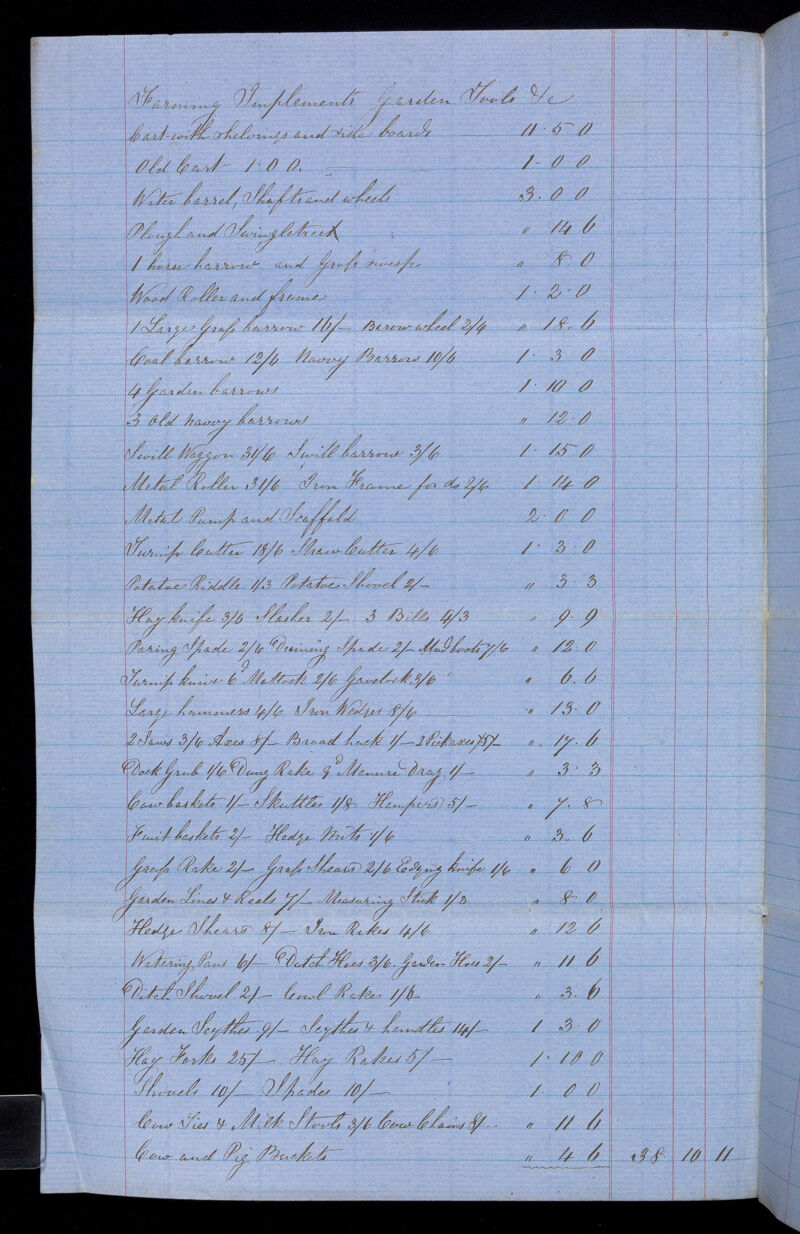 Farming Implements Garden Tools &c
Cart with shelvings and side boards 11 . 5 0
Old Cart 1 . 0 0 . — 1 - 0 0
Water barrel, Shafts and wheels 3 . 0 0
Plough and Swingletree " 14 6
1 horse harrow and Grass sweep " 8 . 0
Wood Roller and frame 1 . 2 . 0
1 Large Grass barrow 16/– Barow wheel 2/6 " 18 . 6
Coal barrow 12/6 Navvy Barrow 10/6 1 . 3 0
4 Garden barrows 1 . 10 0
3 Old navvy barrows " 12 . 0
Swill Waggon 31/6 Swill barrow 3/6 1 . 15 0
Metal Roller 31/6 Iron Frame for do 2/6 1 14 0
Metal Pump and Scaffold 2 . 0 0
Turnip Cutter 18/6 Straw Cutter 4/6 1 . 3 . 0
Potatoe Riddle 1/3 Potatoe Shovel 2/– " 3 3
Hay knife 3/6 Slasher 2/– 3 Bills 4/3 " 9 . 9
Paring Spade 2/6 Draining Spade 2/– Mud boots 7/6 " 12 . 0
Turnip knive 6d Mattock 2/6 Gavelock 3/6 " 6 . 6
Large hammers 4/6 Iron Wedges 8/6 " 13 . 0
2 Saws 3/6 Axes 8/– Broad hack 1/– 2 Pickaxes 5/– " 17 . 6
Dock Grub 1/6 Dung Rake 9d Manure Drag 1/– " 3 . 3
Cow baskets 1/– Skuttles 1/8 Hampers 5/– " 7 . 8
Fruit baskets 2/– Hedge 1/6 " 3 . 6
Grass Rake 2/– Grass Shears 2/6 Edging knife 1/6 " 6 0
Garden Lines & Reels 7/– Measuring Stick 1/3 " 8 0
Hedge Shears 8/– Iron Rakes 4/6 " 12 6
Watering Pans 6/– Dutch Hoes 3/6 . Garden Hoes 2/– " 11 6
Ditch Shovel 2/– Cowl Rake 1/6 " 3 . 6
Garden Scythes 9/– Scythes & handles 14/– 1 3 . 0
Hay Forks 25/– Hay Rakes 5/– 1 . 10 0
Shovels 10/– Spades 10/– 1 . 0 0
Cow Ties & Milk Stools 3/6 Cow Chains 8/– . " 11 6
Cow and Pig Buckets " 4 6 38 10 11